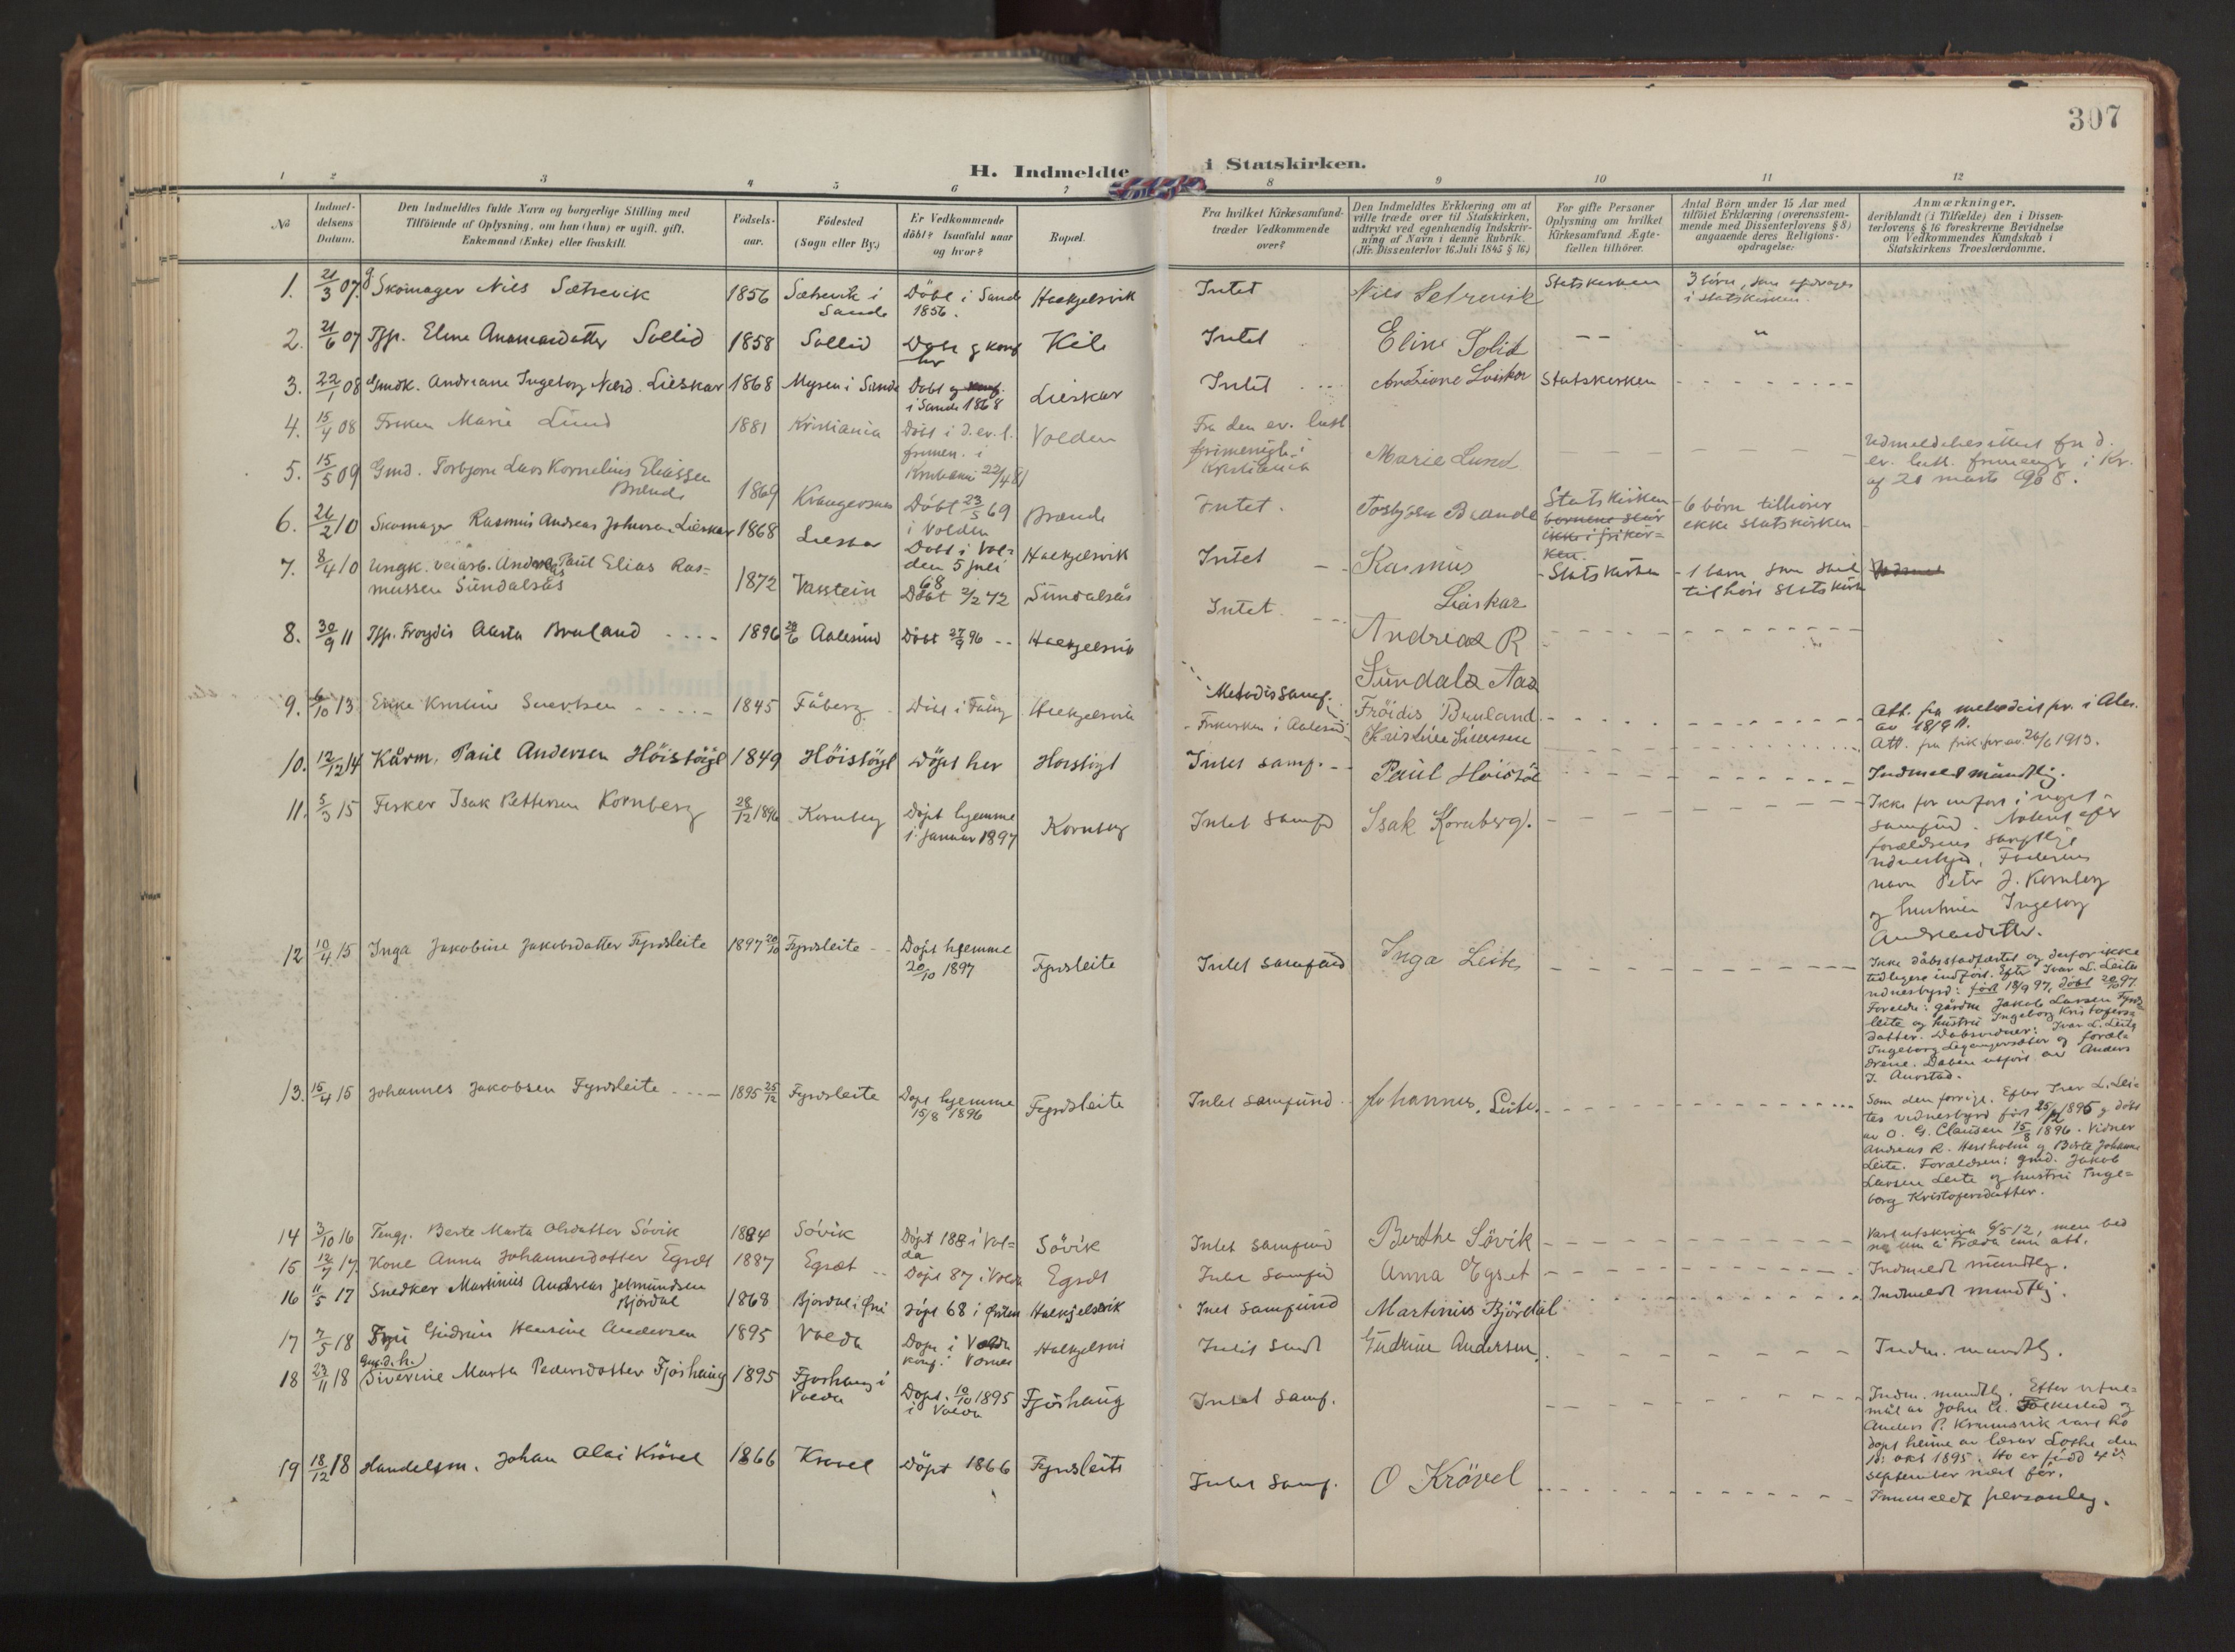 307
H. Indmeldte i Statskirken.
1 2 3 4 5 6 7 8 9 10 11 12
No
Indmel-
delsens
Datum.
Den Indmeldtes fulde Navn og borgerlige Stilling med
Tilföiende af Oplysning, om han (hun) er ugift, gift,
Enkemand (Enke) eller fraskilt.
Födsels-
aar.
Födested
(Sogn eller By.)
Er Vedkommende
döbt? Isaafald naar
og hvor?
Bopæl.
Fra hvilket Kirkesamfund
træder Vedkommende
over?
Den Indmeldtes Erklæring om at
ville træde over til Statskirken,
udtrykt ved egenhændig Indskriv-
ning af Navn i denne Rubrik.
(Jfr. Dissenterlov 16. Juli 1845 § 16)
For gifte Personer
Oplysning om hvilket
Kirkesamfund Ægte-
fællen tilhörer.
Antal Börn under 15 Aar med
tilföiet Erklæring (overensstem-
mende med Dissenterlovens § 8)
angaaende deres Religions-
opdragelse:
Anmærkninger,
deriblandt (i Tilfælde) den i Dissen-
terlovens § 16 foreskrevne Bevidnelse
om Vedkommendes Kundskab i
Statskirkens Troeslærdomme.
1. 21/3 07. Skomager Nils Sætrevik 1856 Sætrevik i Sande Döbt i Sande 1856. Haekjelsvik Intet Nils Setrevik Statskirken 3 börn, som opdrages i statskirken
2. 21/6 07 Eline Sollid 1858 Sollid Döbt og konf her Kile Intet Eline Solid -- "
3. 22/1 08 Gmdk. Andreane Ingeborg Lieskar 1868 Mysen i Sande Döbt og konf. i Sande 1868 Lieskar Intet Statskirken
4. 15/4 08 Fröken Marie Lund 1881 Kristiania Döbt i d. ev. l. frimen. i Kristiania 22/4 81 Volden Fra den ev. luth. frimenigh. i Kristiania Marie Lund
Udmeldelsesattest fra d.
ev. luth. frimenigh. i Kr.
af 21 marts 1908.
5. 15/5 09 Gmd. Torbjorn Lars Kornelius Eliassen Brænde 1869 Krangersnes Döbt 23/5 69 i Volden Brænde Intet. Torbjörn Brænde Statskirken börnene staar ikke i frikirken. 6 börn tilhörer ekke statskirken
6. 26/2 10 Skomager Rasmus Andreas Johnsen Lieskar 1868 Lieskar Döbt i Volden 5 juli 68 Haekjelsvik Intet Rasmus Lieskar Statskirken 1 barn som skal tilhöre statskirken
7. 8/4 10 Ungk. veiarb. Andreas Paul Elias Rasmussen Sundalsås 1872 Vasstein Döbt 2/2 72 Sundalsås Intet. Andreas R Sundals Aas
8. 30/9 11 Froydis Aasta Bruland 1896 Aalesund Döbt 27/9 96 Haekjelsvik Metodissamf. Fröidis Bruland
Att. fra metodistpr. i Ales. av 18/9 11.
9. 6/10 13 Enke Kristine Sivertsen 1845 Fåberg Döbt i Fåberg Haekjelsvik Frikirken i Aalesund Kristine Sivertsen
Att. fra frik. pr. av 26/6 1913.
10. 12/12 14 Kårm. Paul Andersen Höistöyl 1849 Höistöyl Döpt her Höistöyl Intet samf. Paul Höistöl
Indmeldt mundtlig.
11. 5/3 15 Fisker Isak Pettersen Kornberg 28/12 1896 Kornberg Döpt hjemme i januar 1897 Kornberg Intet Samfd Isak Kornberg.
Ikke för indfört i noget
samfund. Noteret efter
forældrenes samtlige
vidnesbyrd. Faderens
navn Peter J. Kornberg
og hustruen Ingeborg
Andreasdatter.
12 10/4 15 Inga Jakobine Jakobsdatter Fyrdsleite 1897 20/10 Fyrdsleite Döpt hjemme 20/10 1897 Fyrdsleite Intet samfund Inga Leite
Ikke dåbsstadfæstet og derfor ikke
tidligere indfört. Efter Ivar L. Leites
vidnesbyrd: föd 18/9 97, döbt 20/10 97.
Foreldre: gårdm Jakob Larsen Fyrds-
leite og hustru Ingeborg Kristofers-
datter. Dåbsvidner: Ivar L. Leite
Ingeborg og foræl-
drene. Dåben utfört av Anders
J. Aurstad.
13. 15/4 15 Johannes Jakobsen Fyrdsleite 1895 25/12 Fyrdsleite Döpt hjemme 15/8 1896 Fyrdsleite Intet samfund Johannes. Leite.
Som den forrige. Efter Ivar L. Lei-
tes vidnesbyrd föd 25/12 1895 og döbt
av O. G. Clausen 15/8 1896. Vidner
Andreas R. og Berte Johanne
Leite. Forældren: gmd. Jakob
Larsen Leite og hustru Inge-
borg Kristofersdatter.
14 3/10 16 Berte Marta Olsdatter Sövik 1884 Sövik Döpt i Volda Sövik Intet Samfund Berthe Sövik
Vart utskriva 6/5 12, men bed
no um å træda inn att.
15 12/7 17. Kone Anna Johannesdotter Egset 1887 Egset Döpt 87 i Volda Egset Intet Samfund Anna Egset
Indmeldt mundtlig.
16 11/5 17 Snedker Martinus Andreas Jetmundsen Björdal 1868 Bjordal i Örsta Döpt 68 i Örsten Haekjelsvik Intet Samfund Martinus Björdal
Indmeldt mundtlig.
17 7/5 18 Gudrun Hansine Andersen 1895 Volda Döpt i Volda konf. Haekjelsvik Intet Samf Gudrun Andersen
Indm. mundtlig.
18 23/11 18 Siverine Marta Pedersdotter Fjoshaug 1895 Fjoshaug i Volda Döpt. 10/10 1895 i Volda Fjöshaug Intet Samf.
Indm. mundtlig. Efter vitne-
mål av John A. Folkestad og
Anders P. Krumsvik vart ho
döpt heime av lærar Lothe den
10: okt 1895. Ho er född
september næst för.
19 18/12 18 Handelsm. Johan Olai Krövel 1866 Krövel Döpt 1866 Fyrdsleite Intet Samf. O Krövel
Innmeldt personleg.